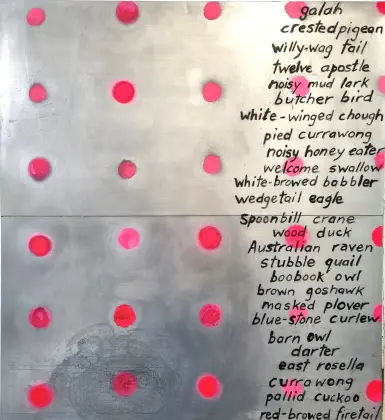 galah
crested pigeon
willy-wag tail
twelve apostle
noisy mud lark
butcher bird
white-winged chough
pied currawong
noisy honey eater
welcome swallow
white-browed babbler
wedgetail eagle
Spoonbill crane
wood duck
Australian raven
stubble quail
boobook owl
brown goshawk
masked plover
blue-stone curlew
barn owl
darter
east rosella
currawong
pallid cuckoo
red-browed firetail